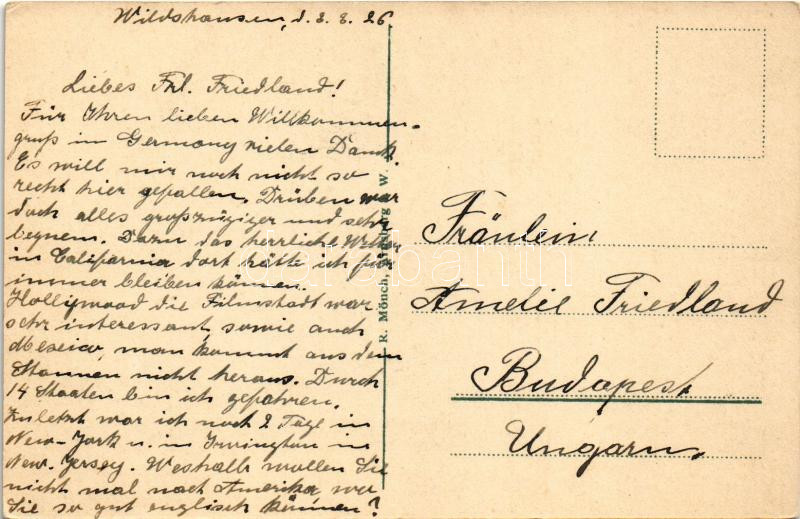 Wildshausen, d. 3. 8. 26.
Liebes Frl. Friedland!
Für Ihren lieben Willkommen-
gruß in Germany vielen Dank.
Es will mir noch nicht so
recht hier gefallen. Drüben war
doch alles großzügiger und sehr
beqnem. Dazu das herrliche Wetter
in California dort hätte ich für
immer bleiben können.
Hollywood die Filmstadt war
sehr interessant, sowie auch
Mexico, man kommt aus dem
Staunen nicht heraus. Durch
14 Staaten bin ich gefahren.
Zuletzt war ich noch 2 Tage in
New-York u. in Irvington in
New-Jersey. Weshalb wollen Sie
nicht mal nach Amerika, wo
Sie so gut englisch können?
R. Mönch, W.
Fräulein
Amelie Friedland
Budapest
Ungarn.
darabanth